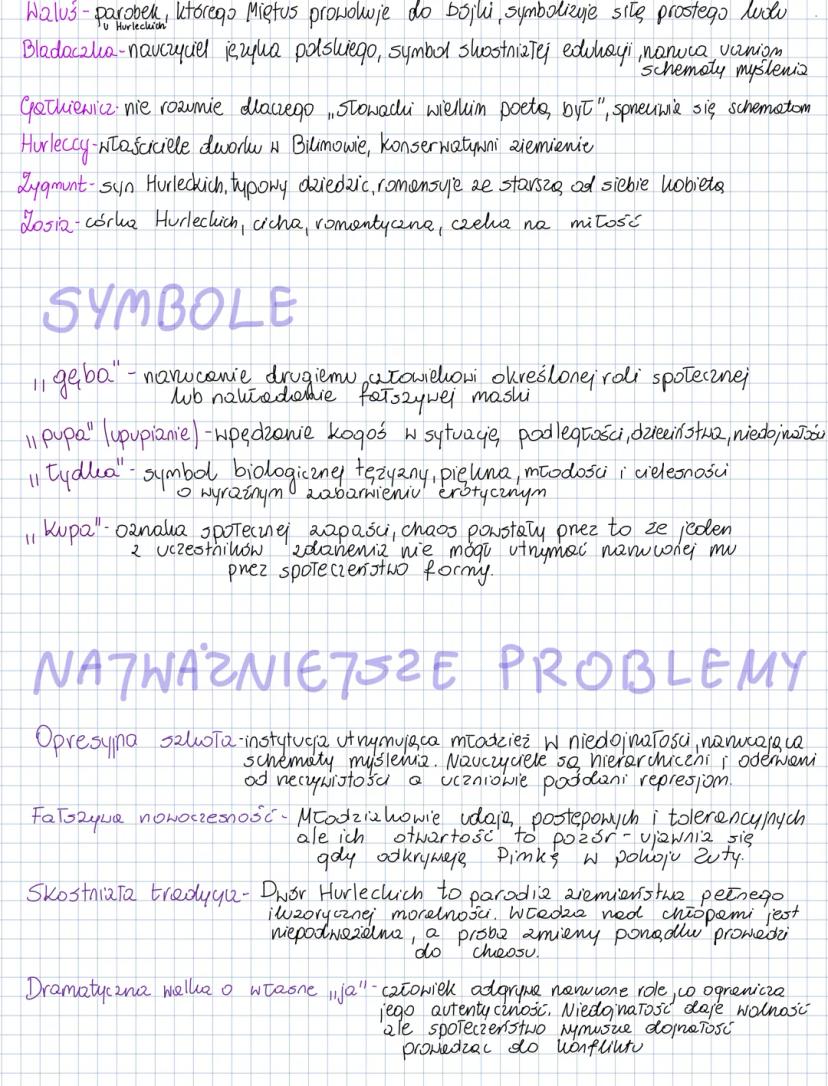 Waluś - parobek, którego Miętus prowokuje do bójki, symbolizuje siłę prostego ludu
u Hurleckich
Bladaczka - nauczyciel języka polskiego, symbol skostniałej edukacji, narzuca uczniom
schematy myślenia
Gałkiewicz - nie rozumie dlaczego „Słowacki wielkim poetą był", sprzeciwia się schematom
Hurleccy - właściciele dworku w Bilimowie, konserwatywni ziemienie
Zygmunt - syn Hurleckich, typowy dziedzic, romansuje ze starszą od siebie kobietą
Zosia - córka Hurleckich, cicha, romantyczna, czeka na miłość
SYMBOLE
„gęba" - narzucanie drugiemu człowiekowi określonej roli społecznej
lub nakładanie fałszywej maski
„pupa" (upupianie) - wpędzanie kogoś w sytuację podległości, dzieciństwa, niedojrzałości
„łydka" - symbol biologicznej tężyzny, piękna, młodości i cielesności
o wyraźnym zabarwieniu erotycznym
„kupa" - oznaka społecznej zapaści, chaos powstały przez to że jeden
z uczestników zdarzenia nie mógł utrzymać narzuconej mu
przez społeczeństwo formy.
NAJWAŻNIEJSZE PROBLEMY
Opresyjna szkoła - instytucja utrzymująca młodzież w niedojrzałości, narzucająca
schematy myślenia. Nauczyciele są hierarchiczni i oderwani
od rzeczywistości a uczniowie poddani represjom.
Fałszywa nowoczesność - Młodziakowie udają postępowych i tolerancyjnych
ale ich otwartość to pozór - ujawnia się
gdy odkrywają Pimkę w pokoju Zuty.
Skostniała tradycja - Dwór Hurleckich to parodia ziemiaństwa pełnego
iluzorycznej moralności. Władza nad chłopami jest
niepodważalna, a próba zmiany porządku prowadzi
do chaosu.
Dramatyczna walka o własne „ja" - człowiek odgrywa narzucone role, co ogranicza
jego autentyczność. Niedojrzałość daje wolność
ale społeczeństwo wymusza dojrzałość
prowadząc do konfliktu